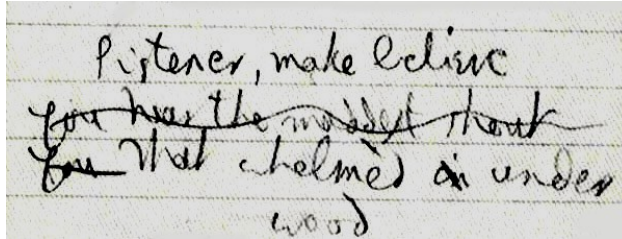 Listener, make believe
you hear the maddest shout
you That helmed in under
wood